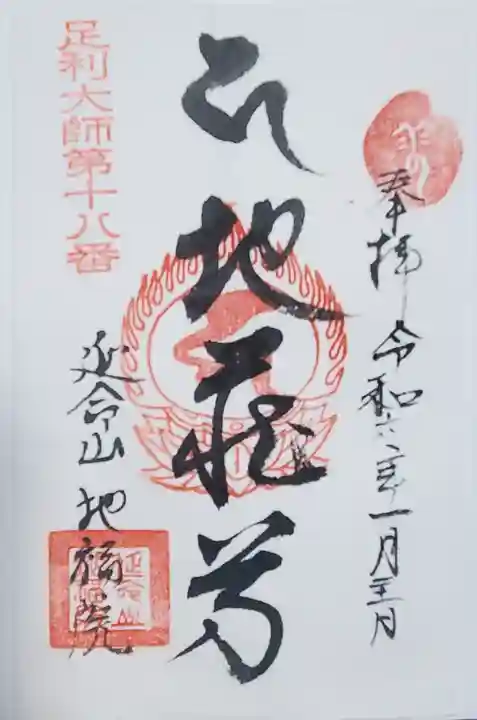 奉拝 令和六年一月三日
地蔵尊
足利大師第十八番
延命山 地福院
延命山